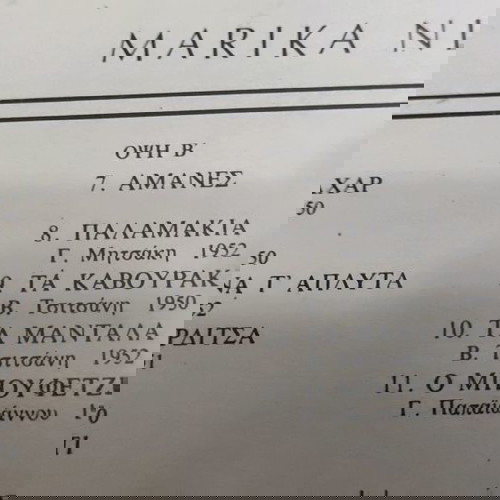 MARIKA NI
ΟΨΗ Β΄
7. ΑΜΑΝΕΣ
ΙΧΑΡ
50
8. ΠΑΛΑΜΑΚΙΑ
Γ. Μητσάκη 1952
50
9 ΤΑ ΚΑΒΟΥΡΑΚ
ΝΑ Τ΄ ΑΠΛΥΤΑ
Β. Τσιτσάνη 1950
52
10. ΤΑ ΜΑΝΤΑΛΑ
ΡΔΙΤΣΑ
Β. Τσιτσάνη 1952
11. Ο ΜΠΟΥΦΕΤΖ
Γ. Παπαϊωάννου